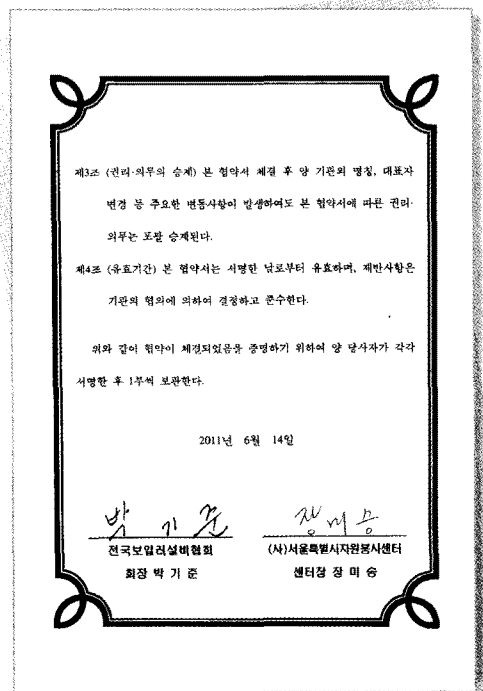 제3조 (권리·의무의 승계) 본 협약서 체결 후 양 기관의 명칭, 대표자
변경 등 주요한 변동사항이 발생하여도 본 협약서에 따른 권리·
의무는 포괄 승계된다.
제4조 (유효기간) 본 협약서는 서명한 날로부터 유효하며, 제반사항은
기관의 협의에 의하여 결정하고 준수한다.
위와 같이 협약이 체결되었음을 증명하기 위하여 양 당사자가 각각
서명한 후 1부씩 보관한다.
2011년 6월 14일
박 기 준 장 미 승
전국보일러설비협회 (사)서울특별시자원봉사센터
회장 박 기 준 센터장 장 미 승